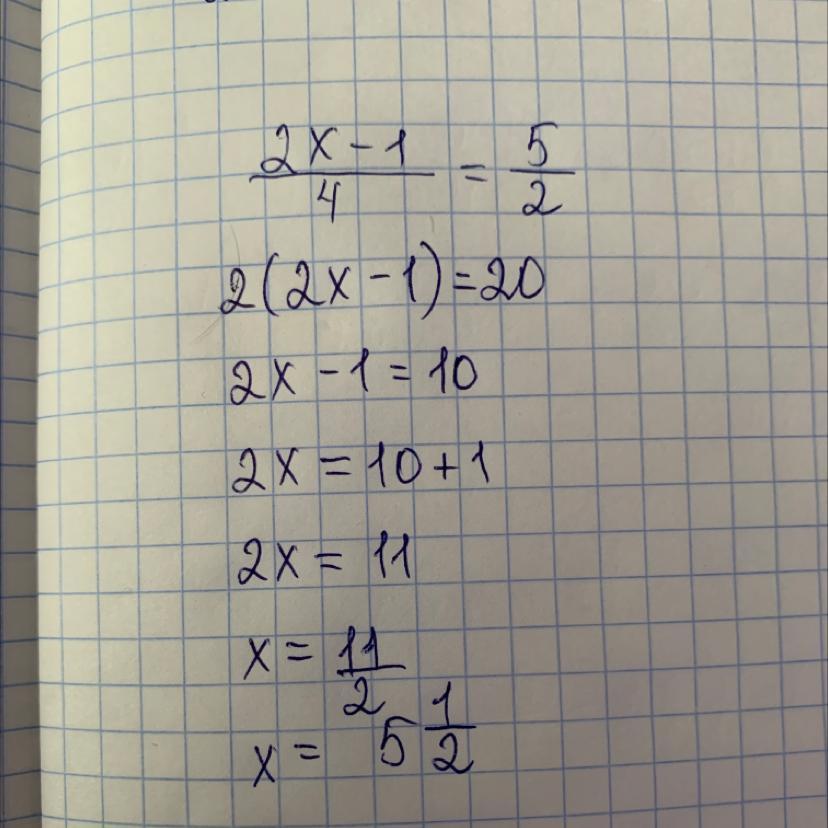 (2x-1)/4 = 5/2
2(2x-1)=20
2x-1=10
2x=10+1
2x=11
x=11/2
x=5 1/2